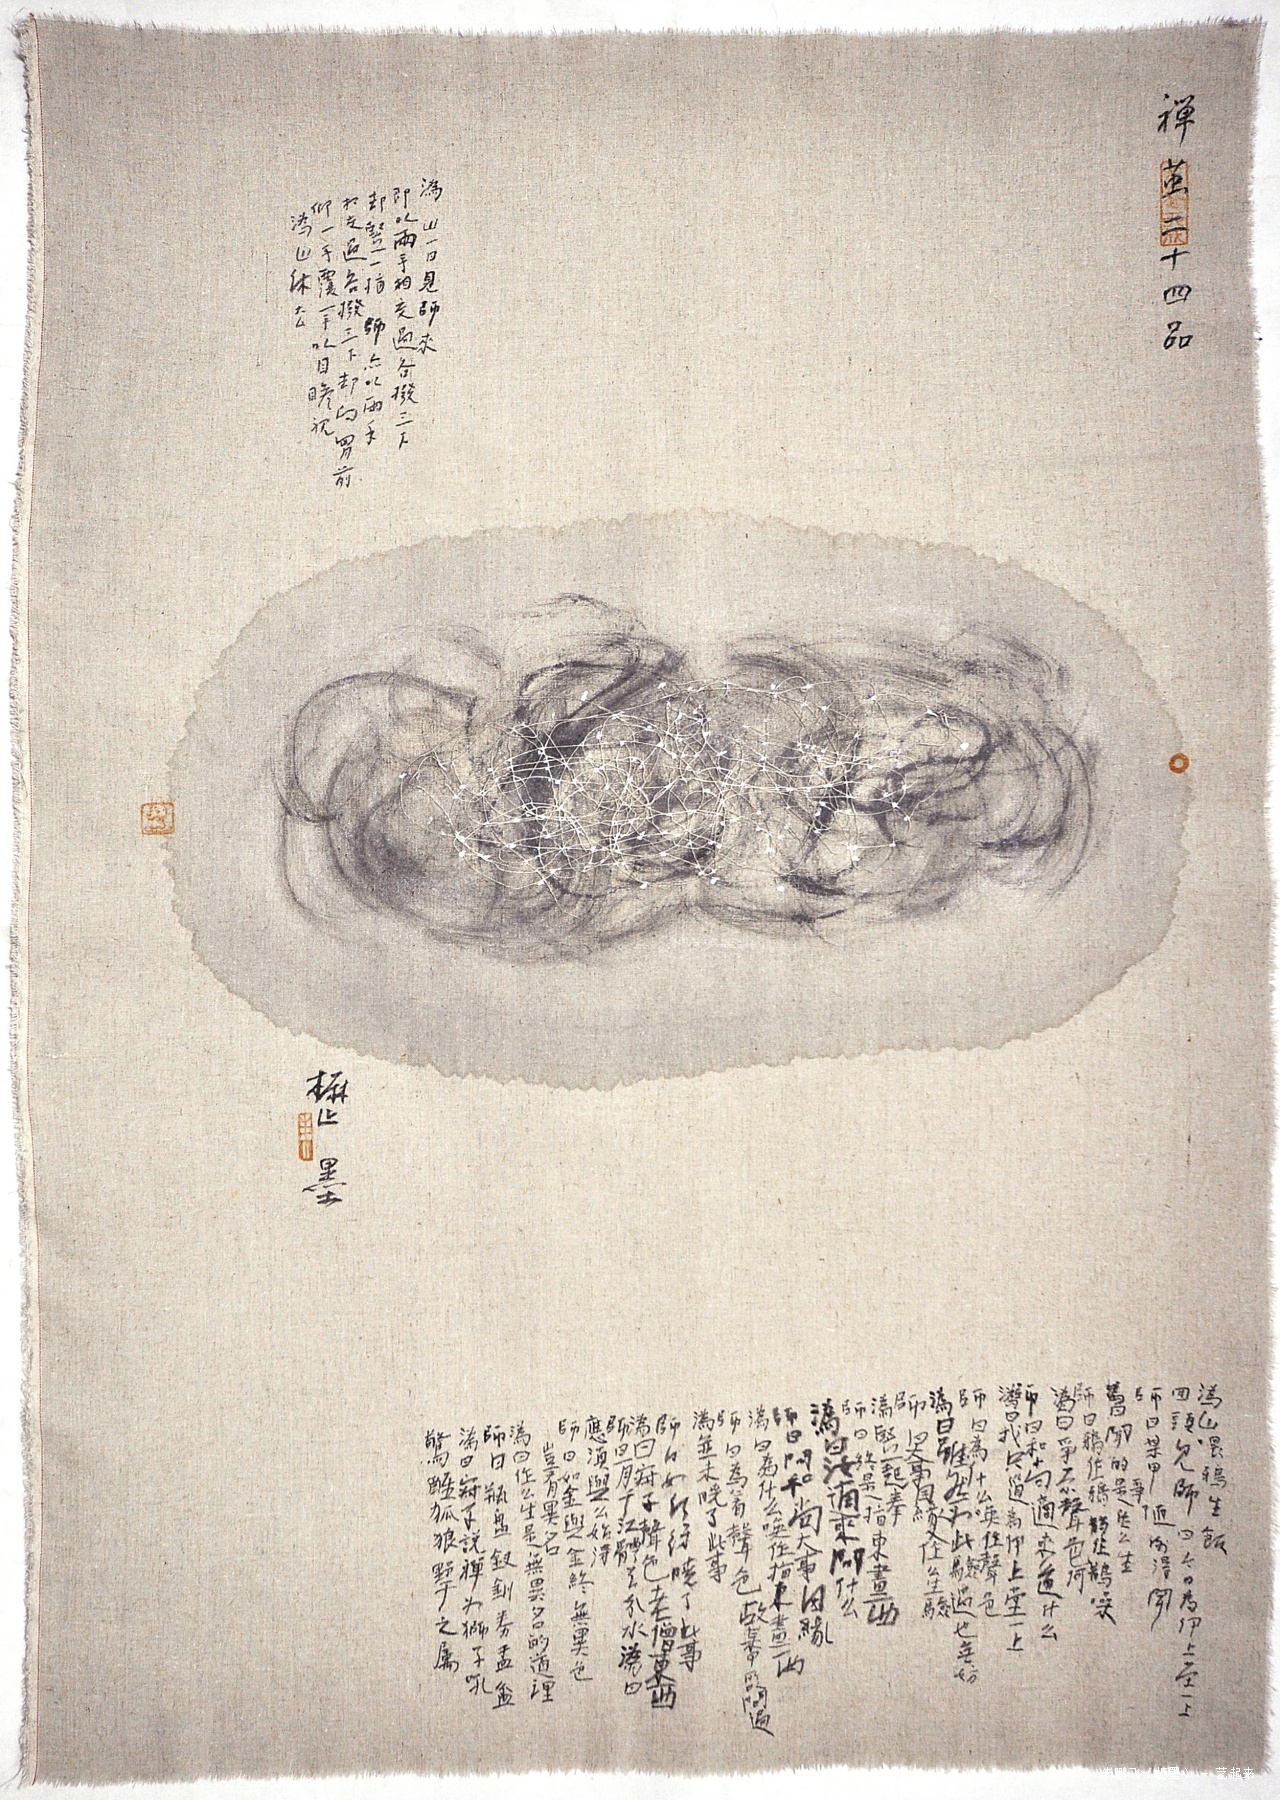 禅茧二十四品
溈山一日見師來
即以兩手相交過各撥三下
却豎一指 師亦以兩手
相交過各撥三下却向胷前
仰一手覆一手以目瞻視
溈山休去
墨
溈山喂鴉生飯
回頭見師曰今日為伊上堂一上
師曰某甲隨例得聞
聞的事是作么生
師曰鴉作鴉鳴鵲作鵲噪
溈曰爭奈聲色何
師曰和尚適來道什么
溈曰我只道為伊上堂一上
師曰為什么喚作聲色
溈曰雖然如此驗過也無妨
師曰大事因緣又作么生驗
溈豎起拳
師曰終是指東畫西
溈曰汝適來問什么
師曰問和尚大事因緣
溈曰為什么喚作指東畫西
師曰為着聲色故某甲所問過
溈並未曉了此事
師曰如何得曉了此事
溈曰寂子聲色老僧東西
師曰一月千江體不分水溈曰
應須與么始得
師曰如金與金終無異色
豈有異名
溈曰作么生是無異名的道理
師曰瓶盤釵釧券盂盆
溈曰寂子說禪如獅子吼
驚散狐狼野干之屬
艺起来